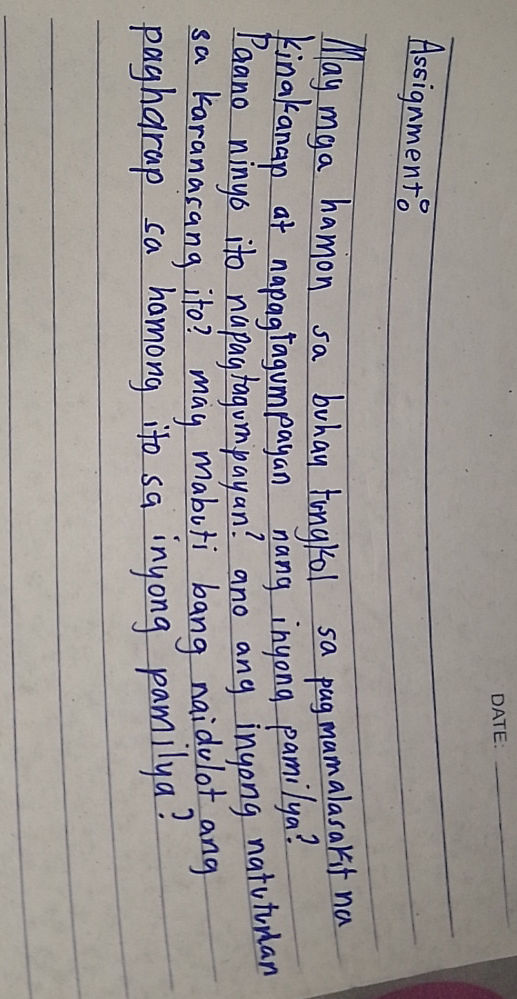 DATE:
Assignment:
May mga hamon sa buhay tungkol sa pagmamalasakit na
kinakanap at napagtagumpayan nang inyong pamilya?
Paano ninyo ito napagtagumpayan? ano ang inyong natutunan
sa karanasang ito? may mabuti bang naidulot ang
paghdrap sa hamong ito sa inyong pamilya?